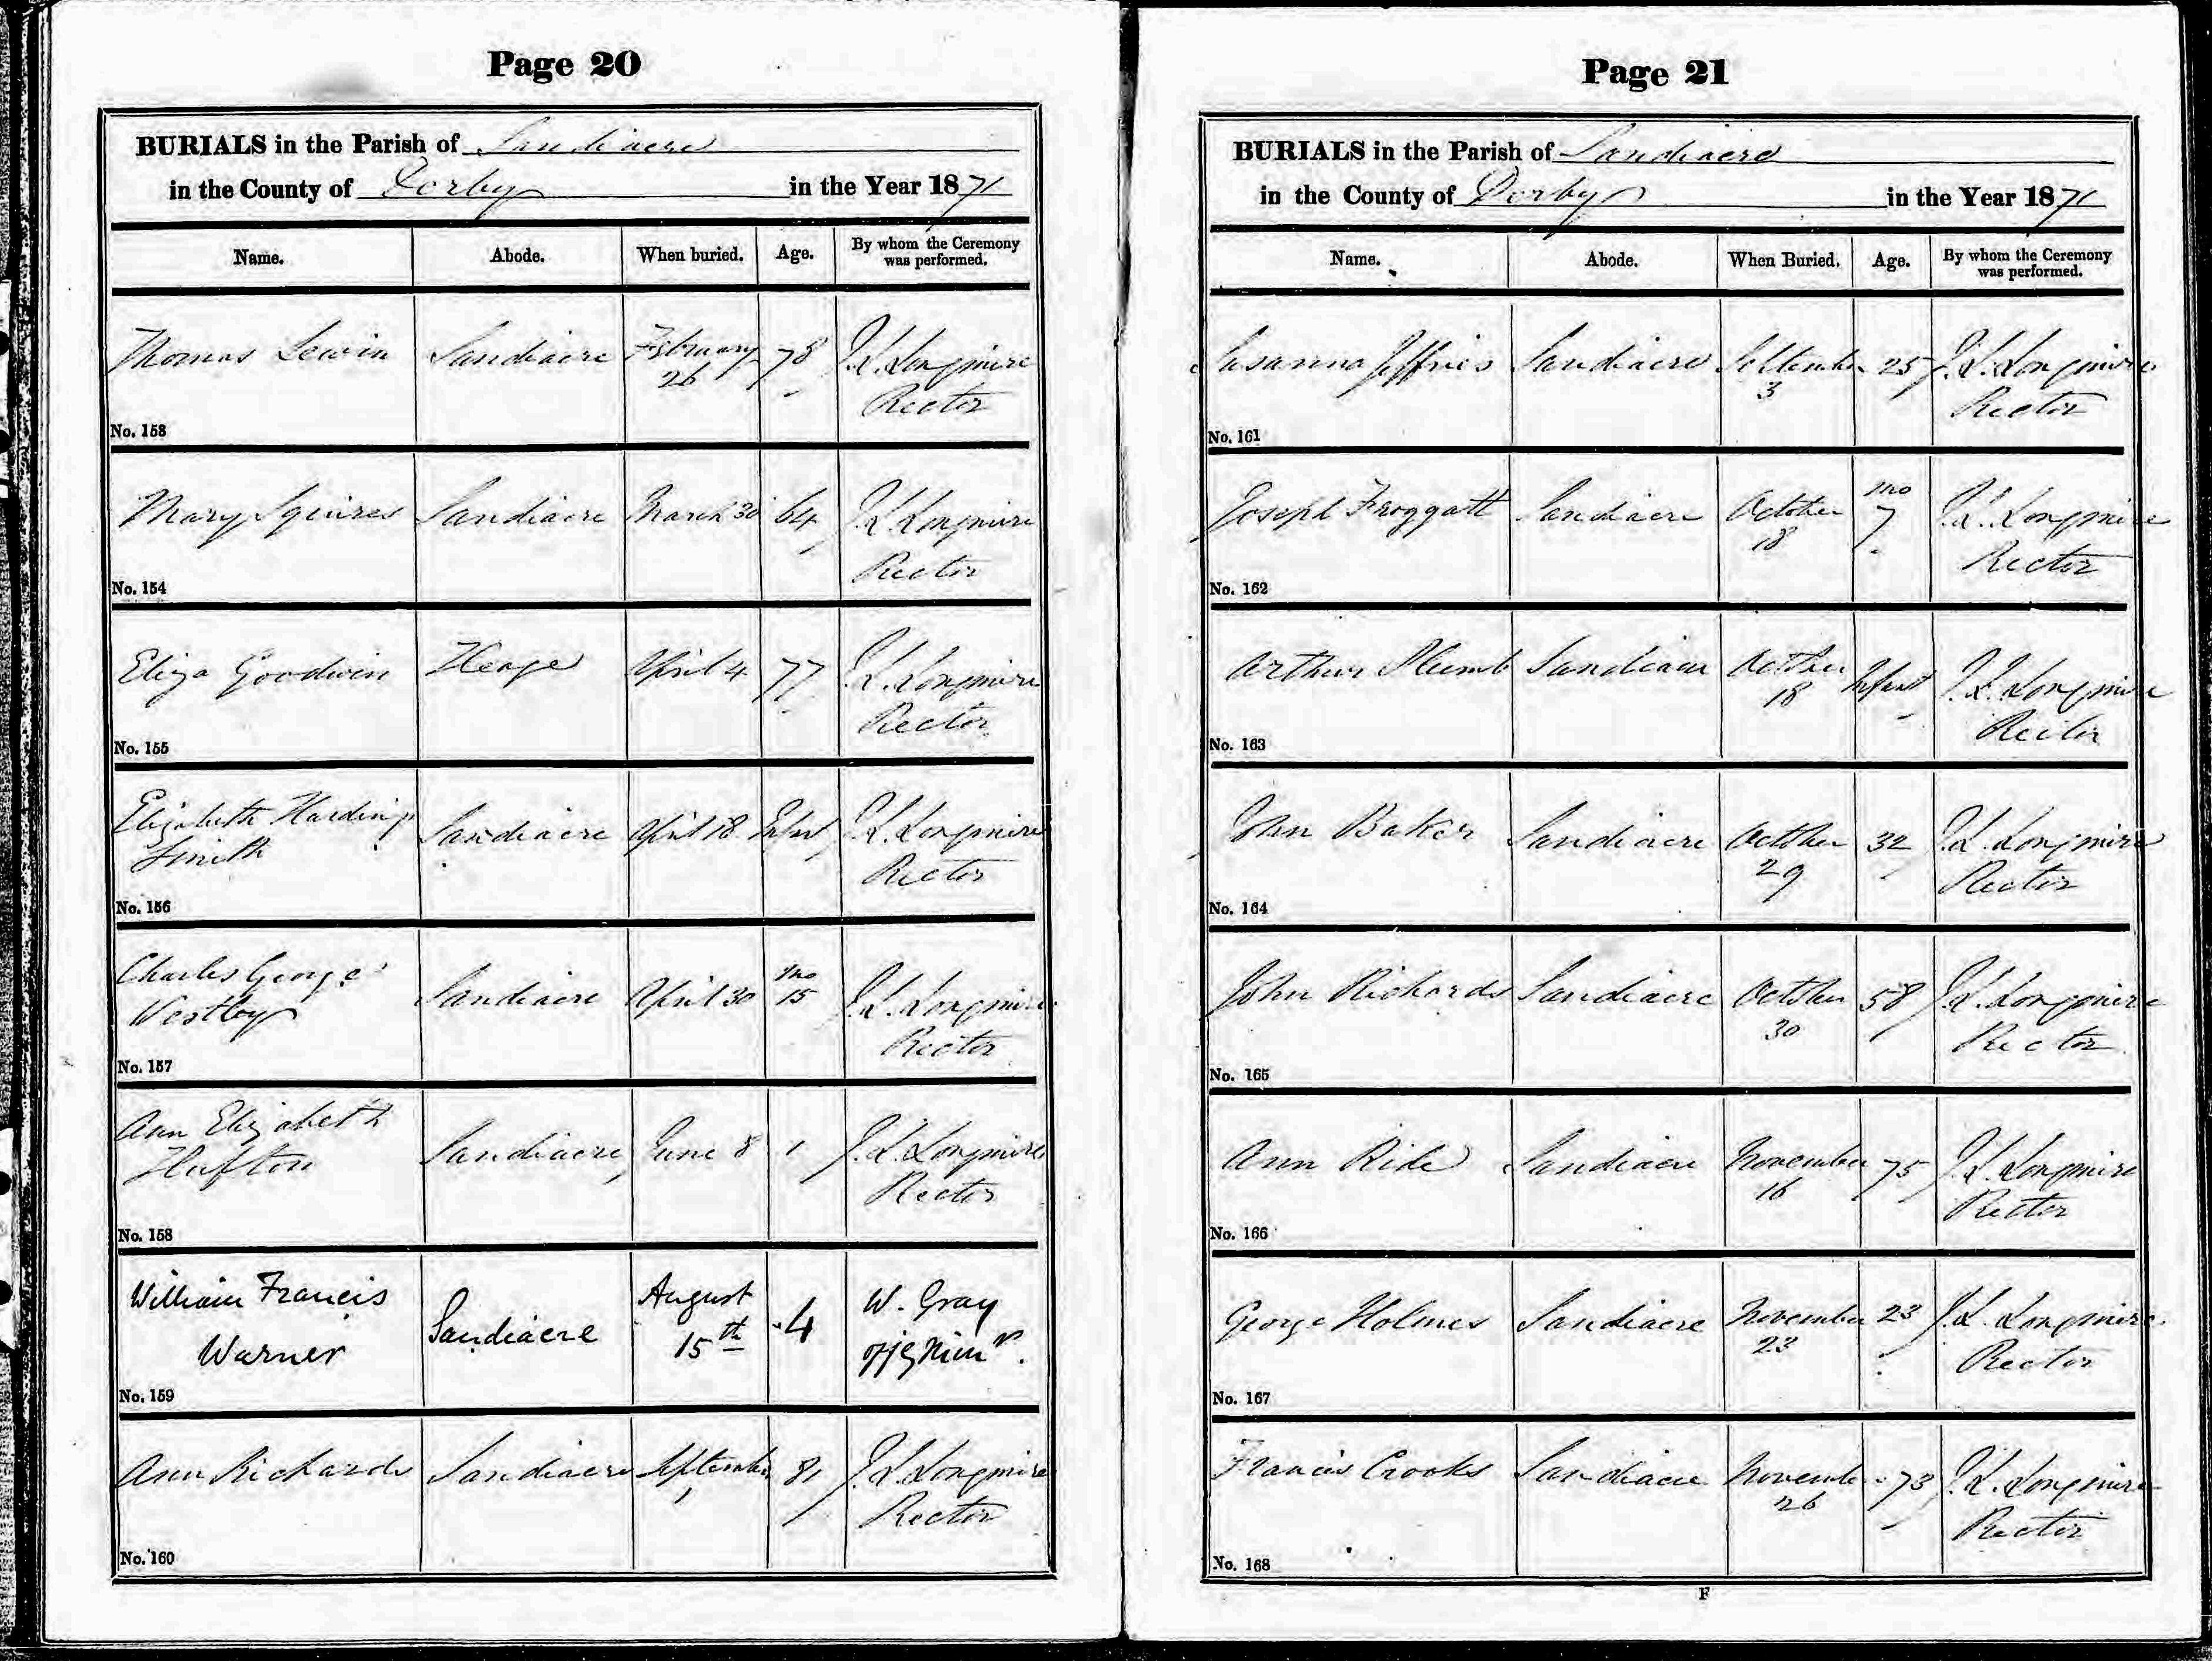 Page 20
BURIALS in the Parish of Sandiacre
in the County of Derby in the Year 1871
Name. Abode. When buried. Age. By whom the Ceremony was performed.
Thomas Lewin Sandiacre February 26 78 J.L. Longmire
Rector
No. 153
Mary Squires Sandiacre March 30 64 J.L. Longmire
Rector
No. 154
Eliza Goodwin Heage April 4 77 J.L. Longmire
Rector
No. 155
Elizabeth Harding
Smith Sandiacre April 18 Infant J.L. Longmire
Rector
No. 156
Charles George
Westby Sandiacre April 30 mo 15 J.L. Longmire
Rector
No. 157
Ann Elizabeth
Hufton Sandiacre June 8 1 J.L. Longmire
Rector
No. 158
William Francis
Warner Sandiacre August 15th 4 W. Gray
No. 159
Ann Richards Sandiacre September 1 81 J.L. Longmire
Rector
No. 160
Page 21
BURIALS in the Parish of Sandiacre
in the County of Derby in the Year 1871
Name. Abode. When Buried. Age. By whom the Ceremony was performed.
Susanna Jeffries Sandiacre September 3 25 J.L. Longmire
Rector
No. 161
Joseph Froggatt Sandiacre October 18 mo 7 J.L. Longmire
Rector
No. 162
Arthur Plumb Sandiacre October 18 Infant J.L. Longmire
Rector
No. 163
John Baker Sandiacre October 29 32 J.L. Longmire
Rector
No. 164
John Richards Sandiacre October 30 58 J.L. Longmire
Rector
No. 165
Ann Rile Sandiacre November 16 75 J.L. Longmire
Rector
No. 166
George Holmes Sandiacre November 23 23 J.L. Longmire
Rector
No. 167
Francis Crooks Sandiacre November 26 73 J.L. Longmire
Rector
No. 168
F